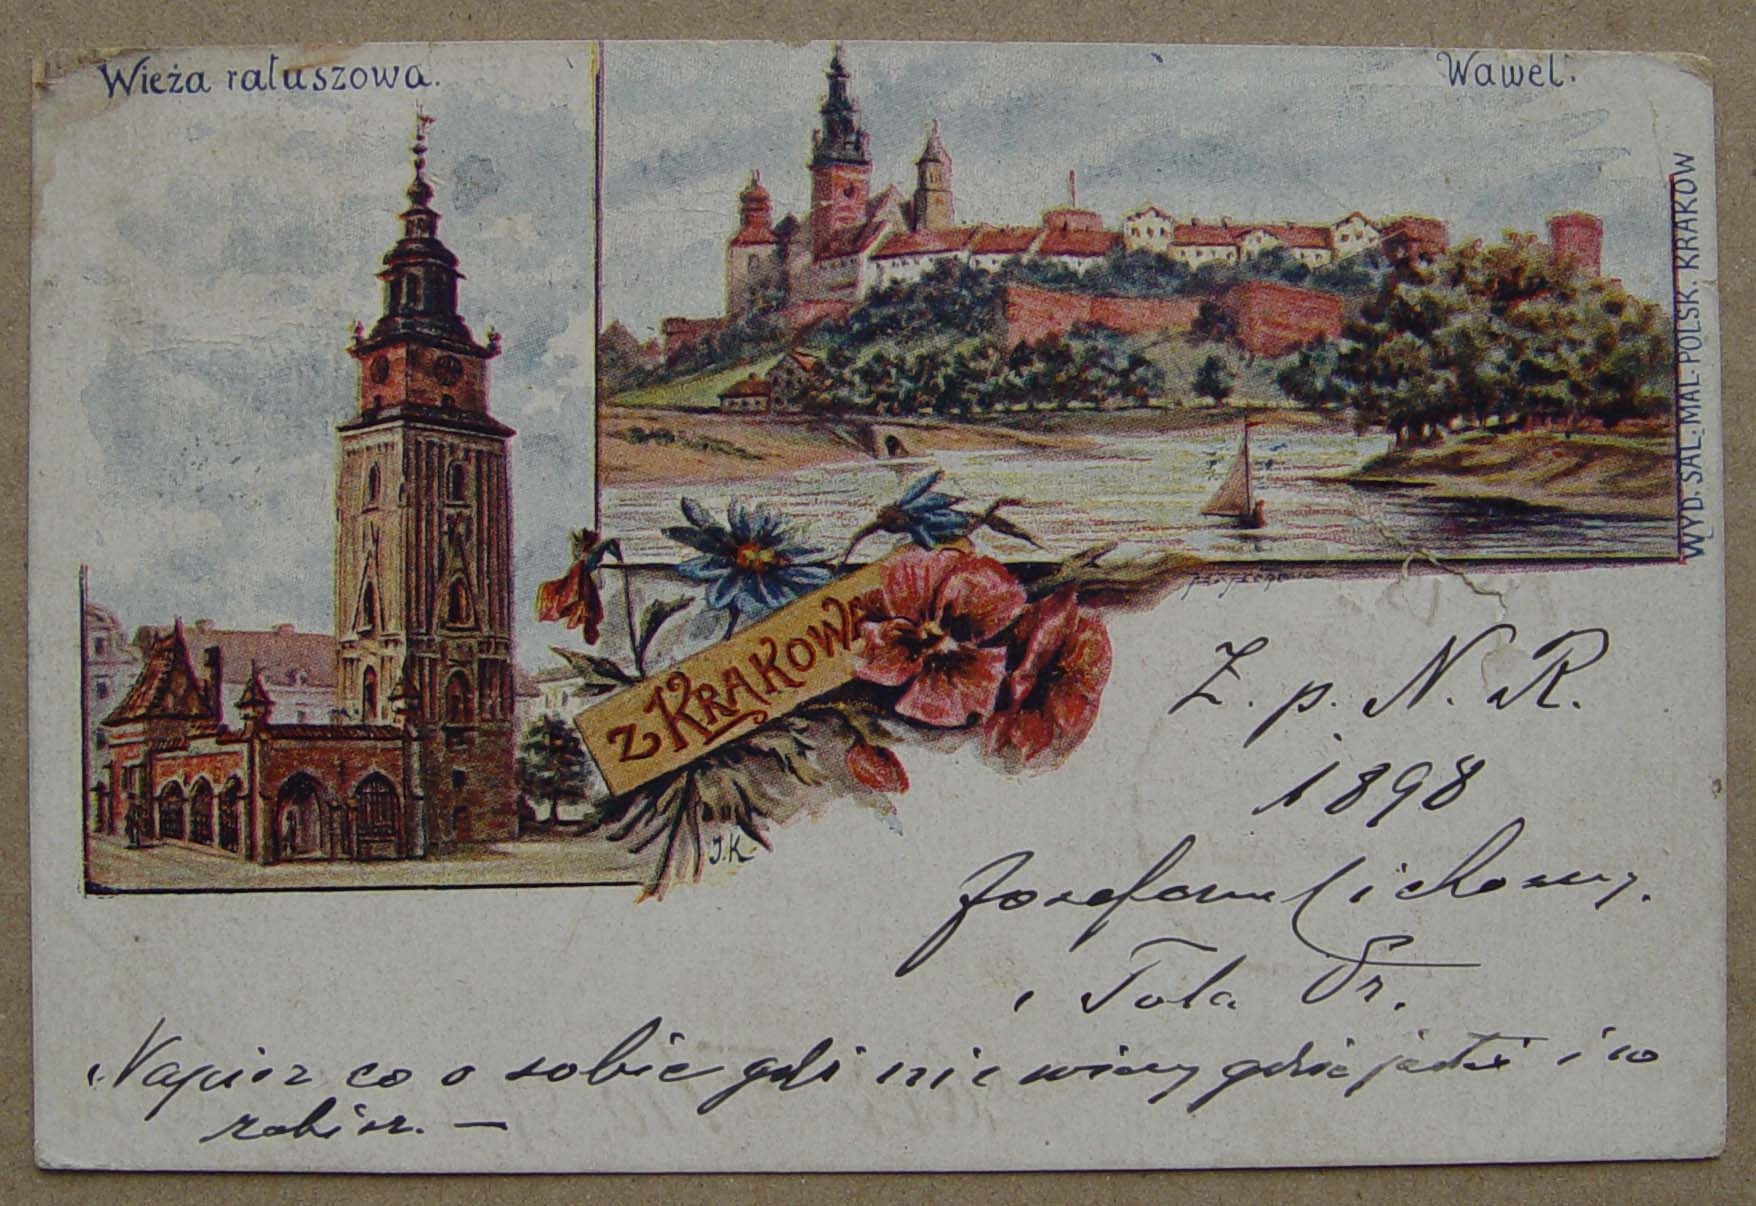 Wieża ratuszowa.
Wawel.
WYD. SAL. MAL. POLSK. KRAKÓW
Z KRAKOWA
J.K.
Z. p. N. R.
1898
i Tola Dr.
Napisz co o sobie gdi nie wiemy gdzie jesteś i co
robisz. —